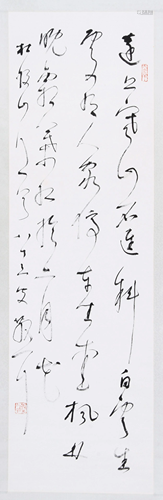 遠上寒山石逕斜白雲生
處有人家停車坐愛楓林
晚霜葉紅於二月花
杜牧山行 八十三叟散耳